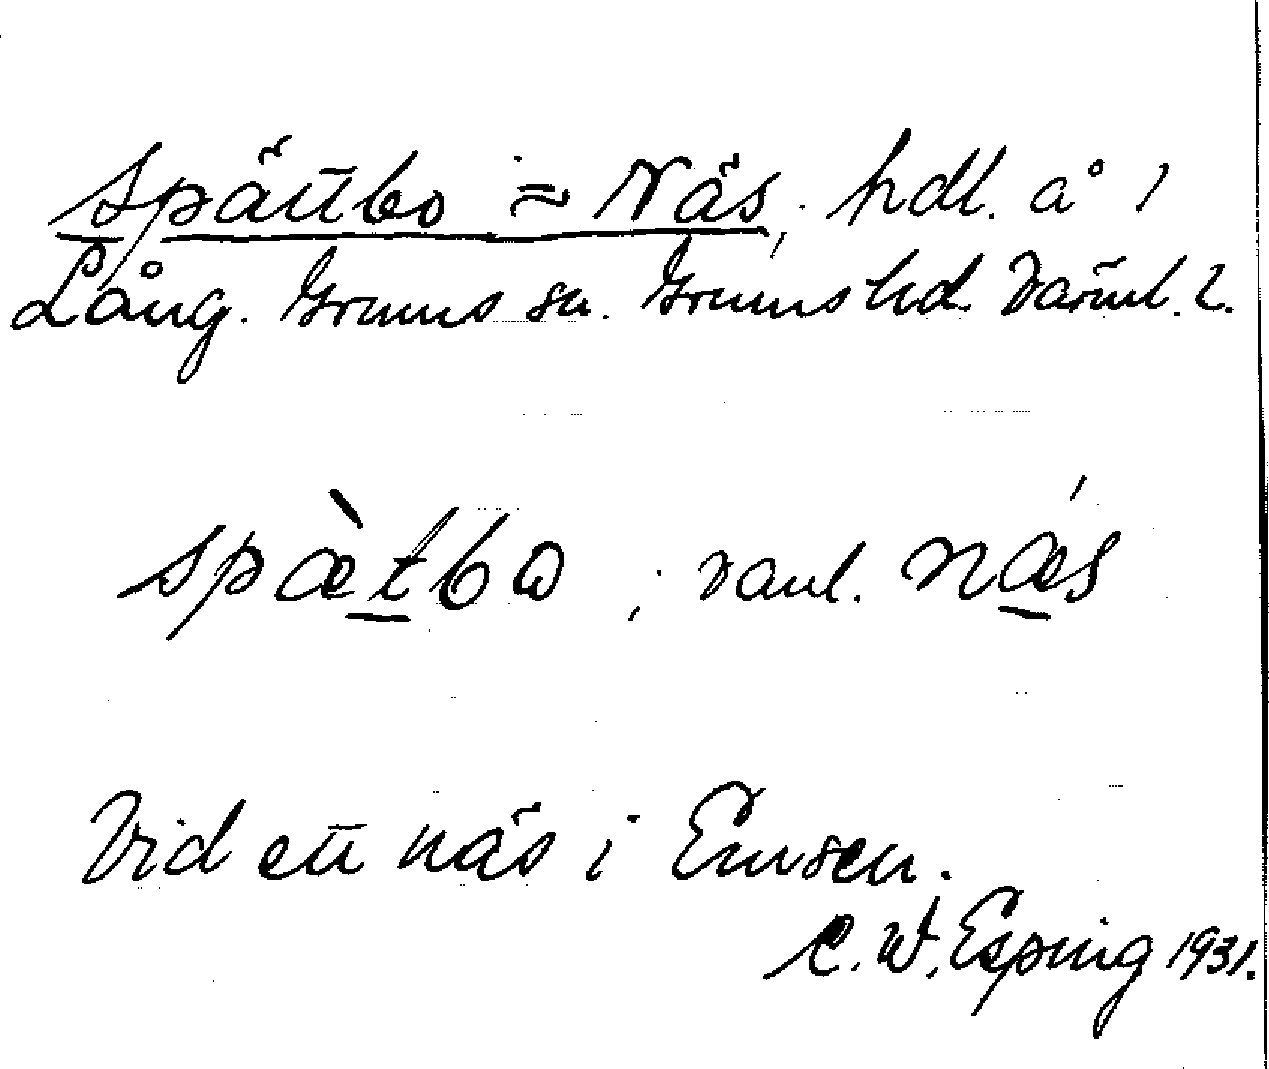 Spättbo = Näs, hdl. å 1
Lång. Grums sn. Grums hd. Värml. l.
spæ̀tbω ; vanl. nǽs
Vid ett näs i Emsen.
C. W. Esping 1931.